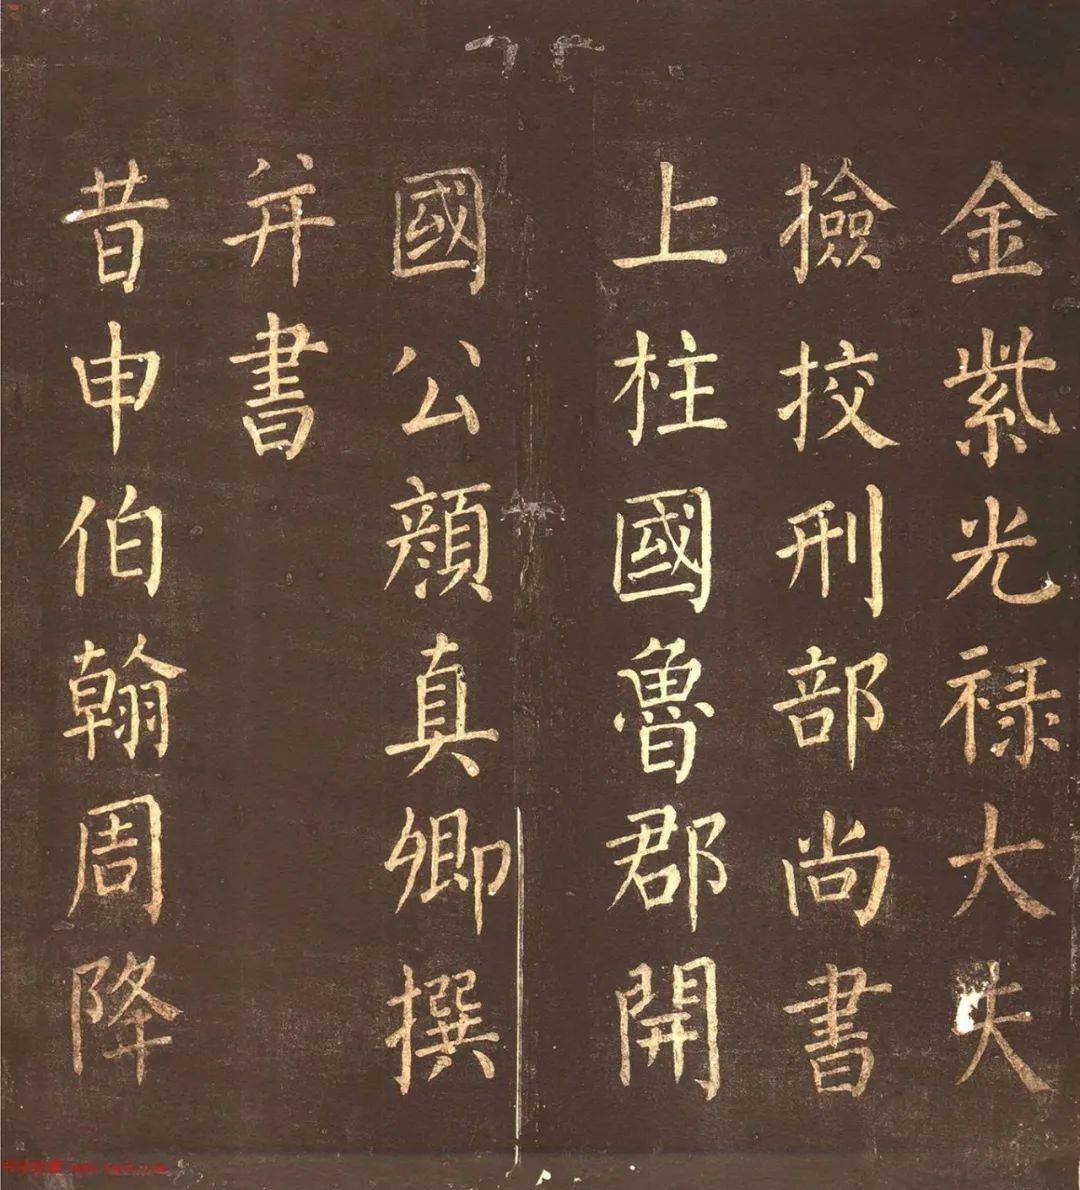 金紫光禄大夫
撿挍刑部尚書
上柱國魯郡開
國公顔真卿撰
并書
昔申伯翰周降